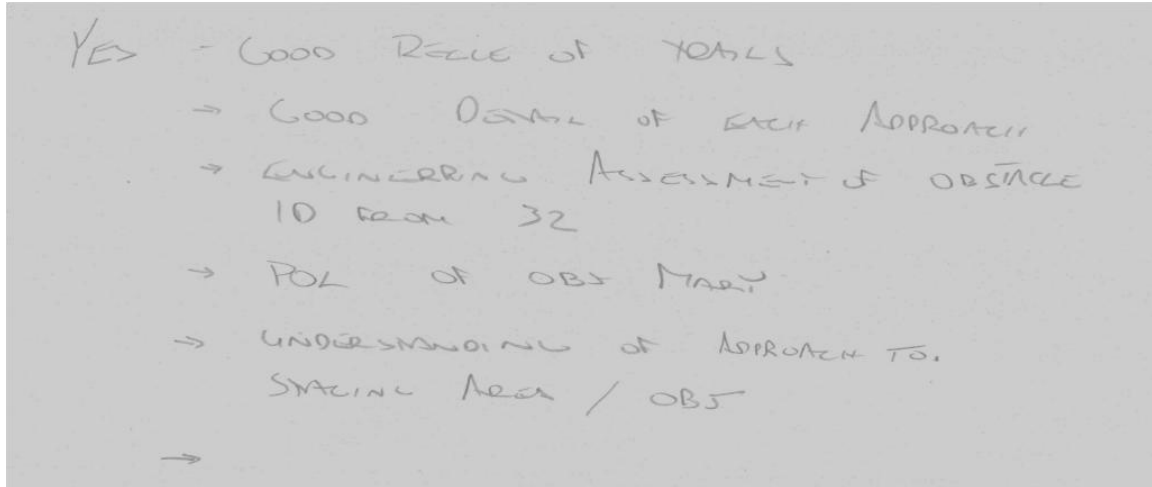 YES - GOOD RECCE OF
→ GOOD DETAIL OF EACH APPROACH
→ ENGINEERING ASSESSMENT OF OBSTACLE
ID FROM 32
→ POL OF OBJ MARY
→ UNDERSTANDING OF APPROACH TO.
STAGING AREA / OBJ
→